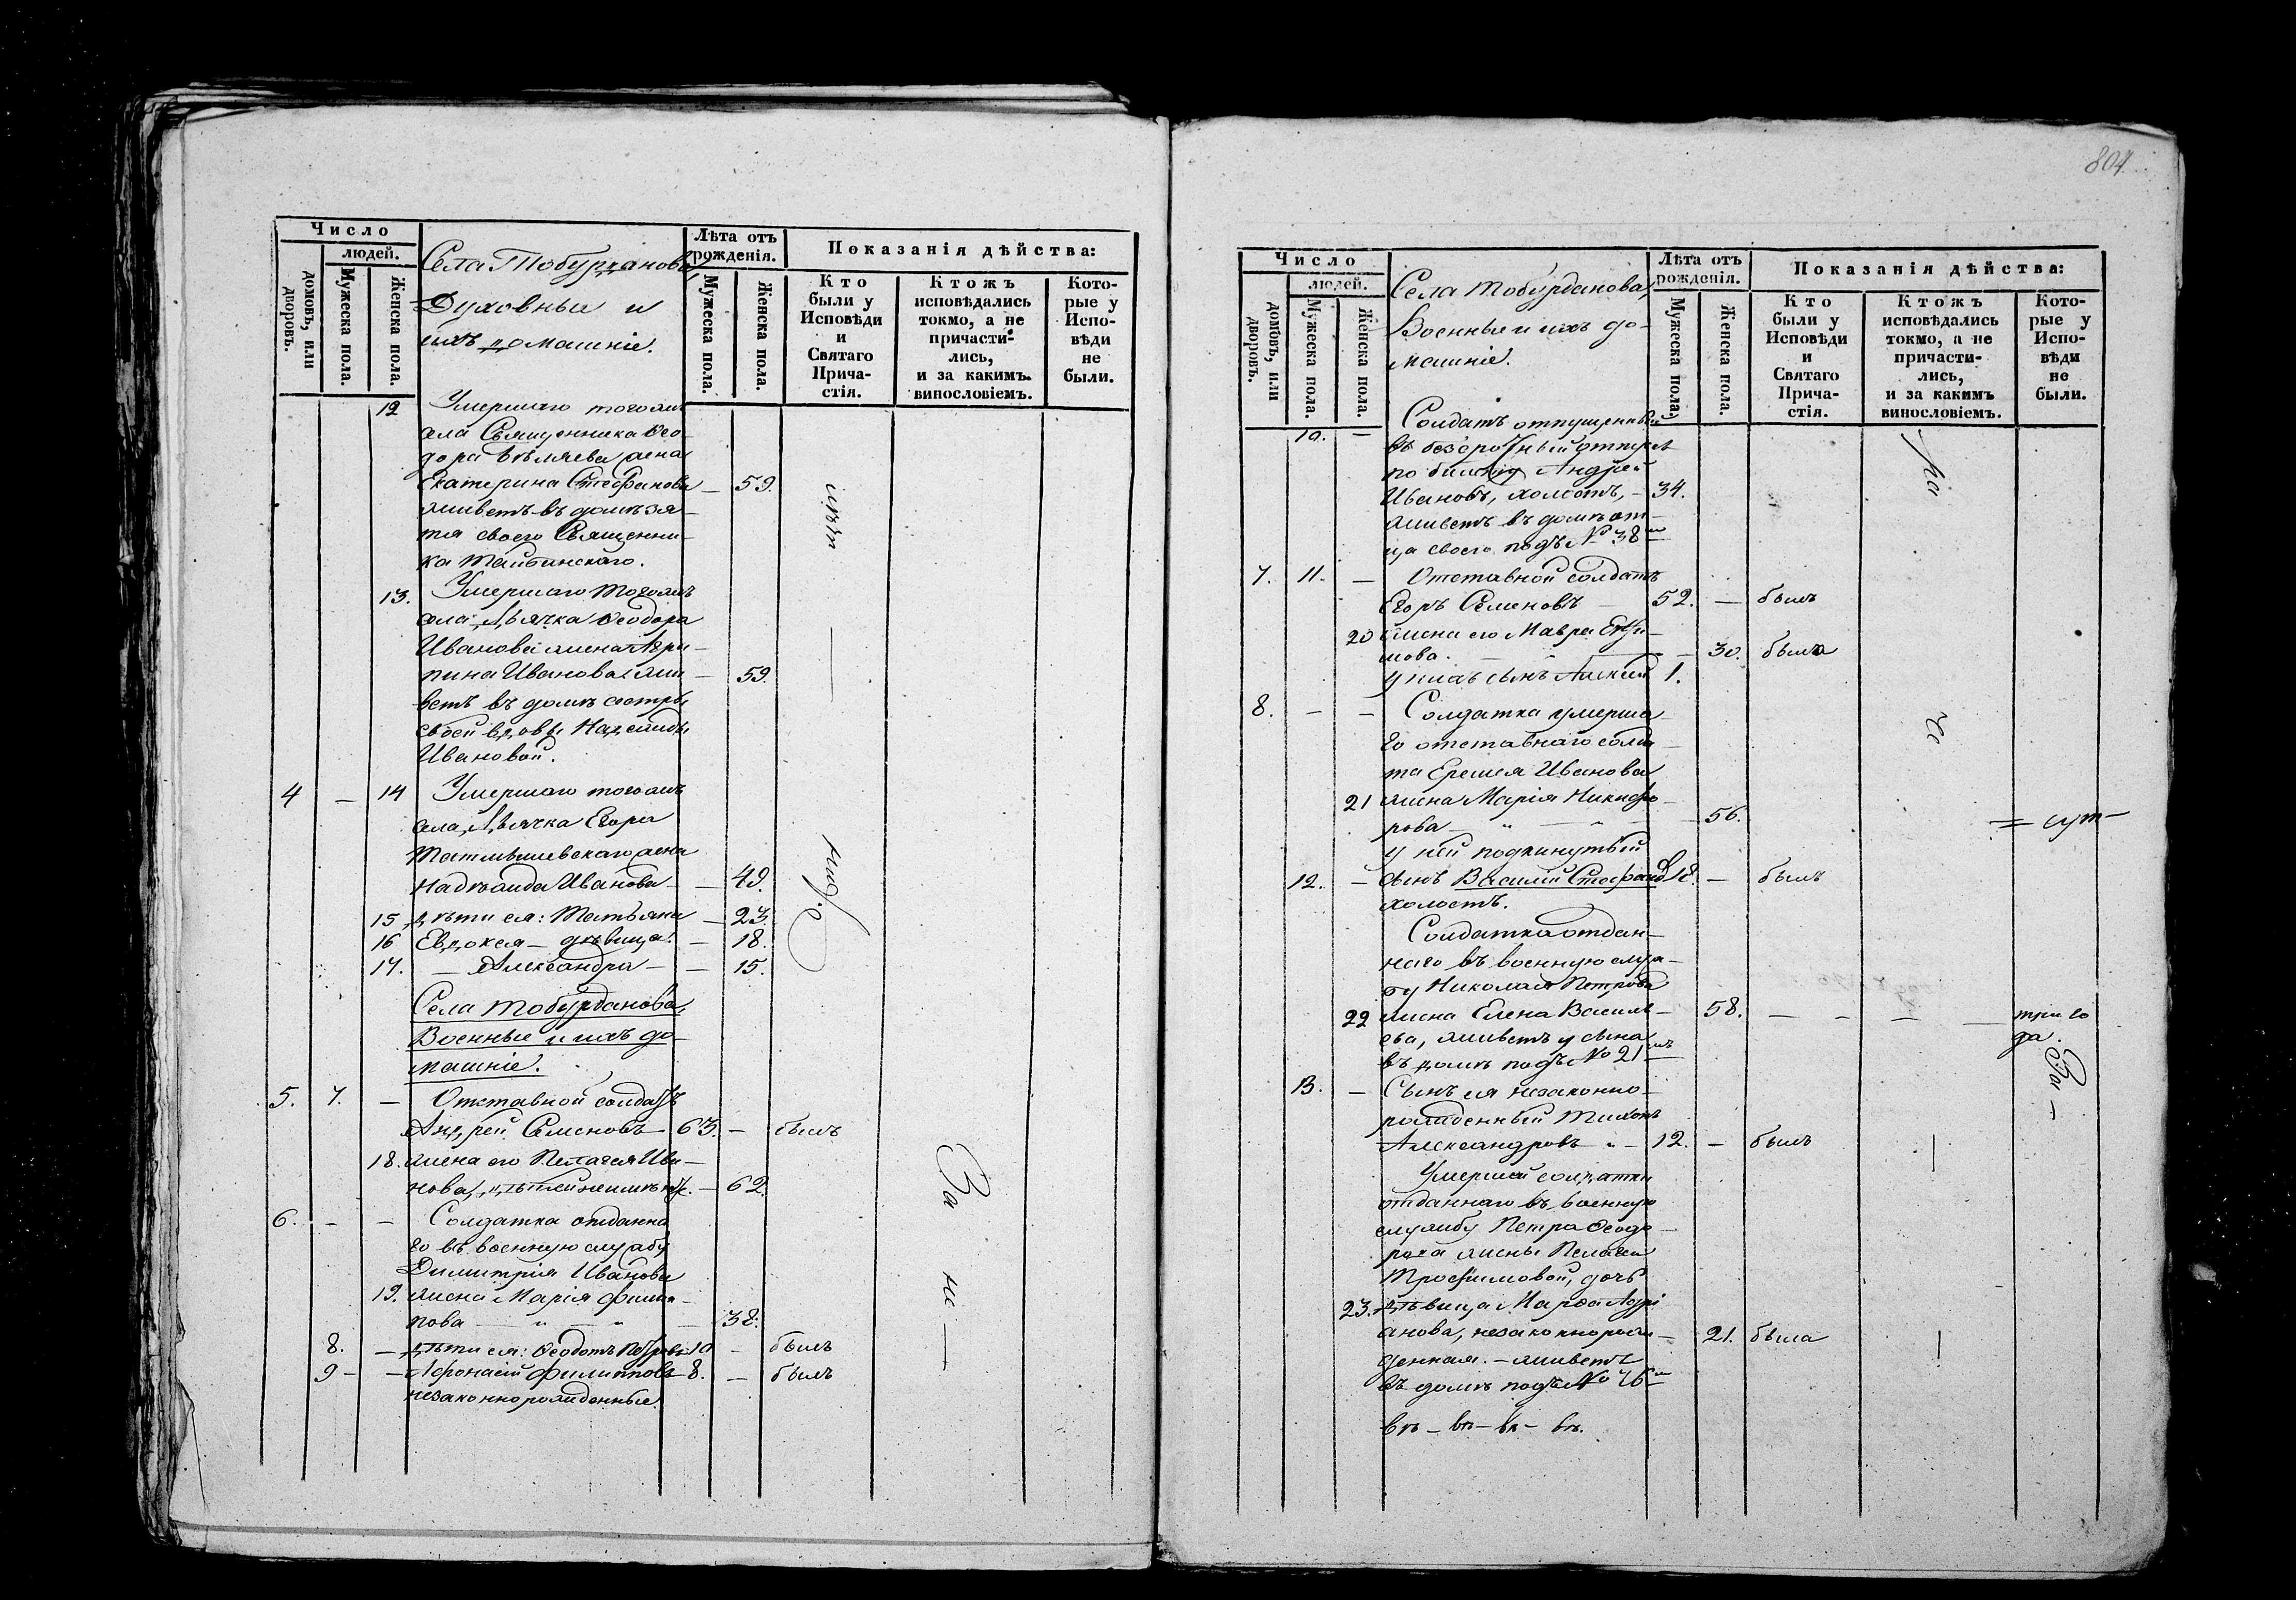 Число
людей.
домовъ, или дворовъ.
Мужеска пола.
Женска пола.
Села Тобурданова,
Духовные и
ихъ домашніе.
Лѣта отъ
рожденія.
Мужеска пола.
Женска пола.
Показанія дѣйства:
Кто
были у
Исповѣди
и
Святаго
Прича-
стія.
Ктожъ
исповѣдались
токмо, а не
причасти-
лись,
и за какимъ
винословіемъ.
Кото-
рые у
Испо-
вѣди
не
были.
12 Умершаго тогожъ
села Священника Ѳео-
дора Бѣляева жена
Екатерина Стефанова — 59.
живетъ въ домѣ зя-
тя своего Священни-
ка
13. Умершаго тогожъ
села Дьячка Ѳеодора
Иванова жена Агри-
пина Иванова жи- — 59.
ветъ въ домѣ сестры
своей вдовы Надежды
Ивановой.
4 — 14 Умершаго тогожъ
села Дьячка Егора
жена
Надѣжда Иванова — 49.
15 дѣти ея: Татьяна — 23.
16 Евдокея — дѣвица. — 18.
17. — Александра — — 15.
Села Тобурданова,
Военные и ихъ до-
машніе.
5. 7. — Отставной солдатъ
Андрей Семеновъ — 63. — былъ
18. жена его Пелагея Ива-
нова, — 62.
6. — — Солдатка отданна
го въ военную службу
Димитрія Иванова
19. жена Марія Филип-
пова — " — " — 38.
8. — дѣти ея: Ѳеодотъ Петровъ 10 — былъ
9 — — Афонасій Филипповъ — 8. — былъ
незаконнорожденные.
За не —
804
Число
людей.
домовъ, или дворовъ.
Мужеска пола.
Женска пола.
Села Тобурданова,
Военные и ихъ до-
машніе.
Лѣта отъ
рожденія.
Мужеска пола.
Женска пола.
Показанія дѣйства:
Кто
были у
Исповѣди
и
Святаго
Прича-
стія.
Ктожъ
исповѣдались
токмо, а не
причасти-
лись,
и за какимъ
винословіемъ.
Кото-
рые у
Испо-
вѣди
не
были.
10. — Солдатъ отпущенный
въ безсрочный отпускъ
по билету Андрей
Ивановъ, холостъ, — 34.
живетъ въ домѣ от-
ца своего подъ № 38
7. 11. — Отставной солдатъ
Егоръ Семеновъ — 52. — былъ
20 жена его Мавра Ефи-
мова. — — 30. была
у нихъ сынъ Алексей 1.
8. — — Солдатка умерша
го отставнаго солда-
та Еремея Иванова
21 жена Марія Никифо-
рова — " — " — 56.
= сут —
у ней подкинутый
12. — сынъ Василій Стефановъ 18. — былъ
холостъ.
Солдатка отдан-
наго въ военную служ-
бу Николая Петрова
22 жена Елена Василь- — 58. — — — — три го
ева, живетъ у сына да.
въ домѣ подъ № 21
13. — Сынъ ея незаконно-
рожденный Тихонъ
Александровъ " — 12. — былъ
Умершей солдатки
отданнаго въ военную
службу Петра Ѳеодо-
рова жены Пелагеи
Трофимовой, дочь
23. дѣвица Марѳа Адрі
анова, незаконнорож- — 21. была
денная. — живетъ
въ домѣ подъ № 76